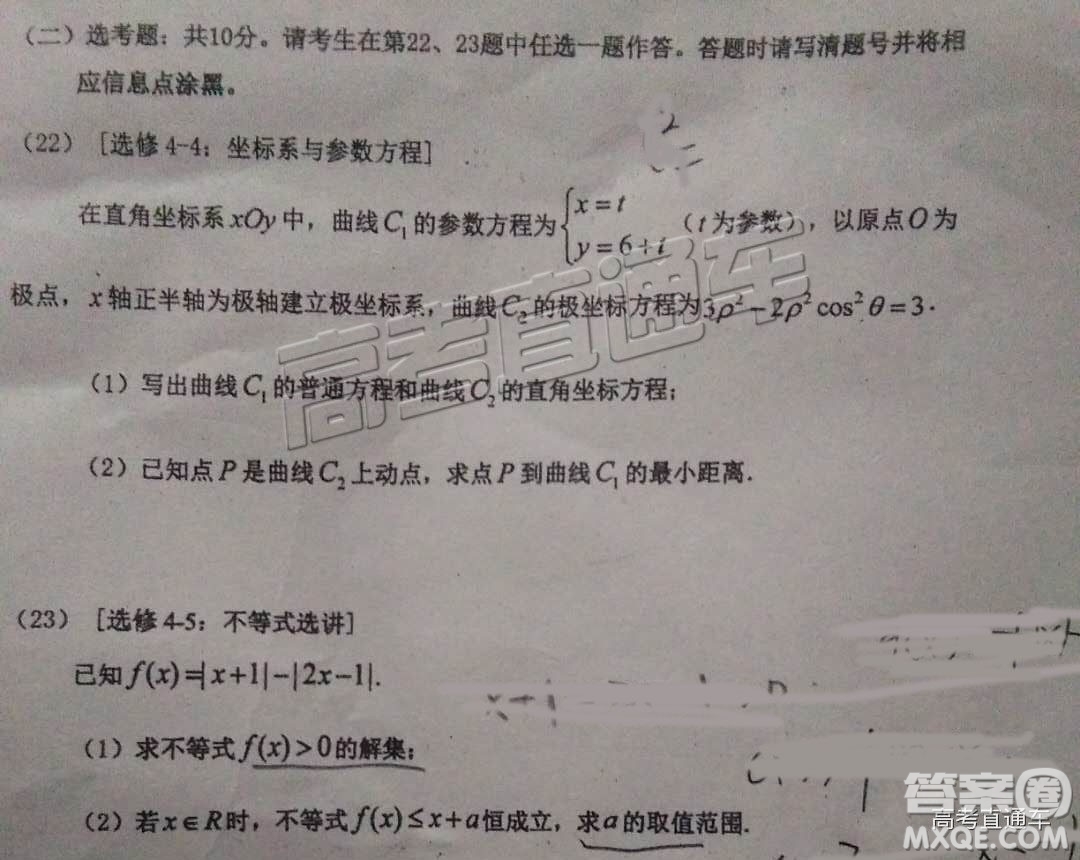 （二）选考题：共10分。请考生在第22、23题中任选一题作答。答题时请写清题号并将相
应信息点涂黑。
（22）［选修4-4：坐标系与参数方程］
在直角坐标系xOy中，曲线C₁的参数方程为{x=t
y=6+t（t为参数），以原点O为
极点，x轴正半轴为极轴建立极坐标系，曲线C₂的极坐标方程为3ρ²－2ρ²cos²θ=3.
（1）写出曲线C₁的普通方程和曲线C₂的直角坐标方程；
（2）已知点P是曲线C₂上动点，求点P到曲线C₁的最小距离.
（23）［选修4-5：不等式选讲］
已知f(x)=|x+1|-|2x-1|.
（1）求不等式f(x)>0的解集；
（2）若x∈R时，不等式f(x)≤x+a恒成立，求a的取值范围.
高考直通车
答案圈
MXQE.COM
高考直通车